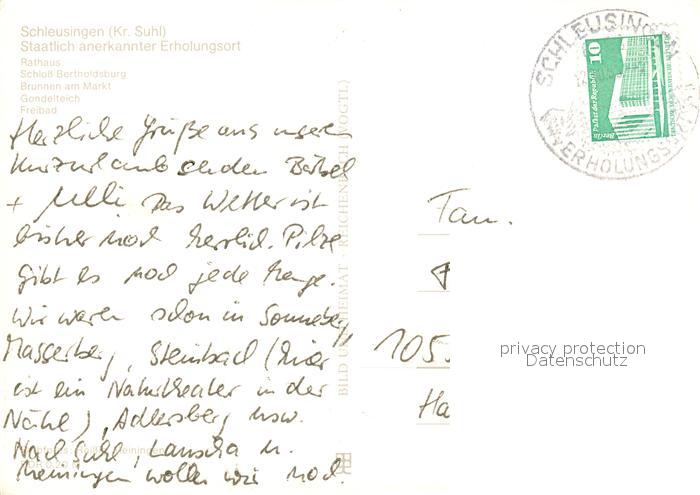 Schleusingen (Kr. Suhl)
Staatlich anerkannter Erholungsort
Rathaus
Schloß Bertholdsburg
Brunnen am Markt
Gondelteich
Freibad
Herzliche Grüße aus unserem
Kurzurlaub senden Bärbel
+ Ulli. Das Wetter ist
bisher noch herrlich. Pilze
gibt es noch jede Menge.
Wir waren schon in Sonneberg,
Masserberg, Steinbach (hier
ist ein Naturtheater in der
Nähe), Adlersberg usw.
Nach Suhl, Lauscha u.
Meiningen wollen wir noch.
BILD UND HEIMAT · REICHENBACH (VOGTL)
SCHLEUSINGEN
ERHOLUNGS
10
Palast der Republik
Berlin
Fam.
105
Ha
privacy protection
Datenschutz